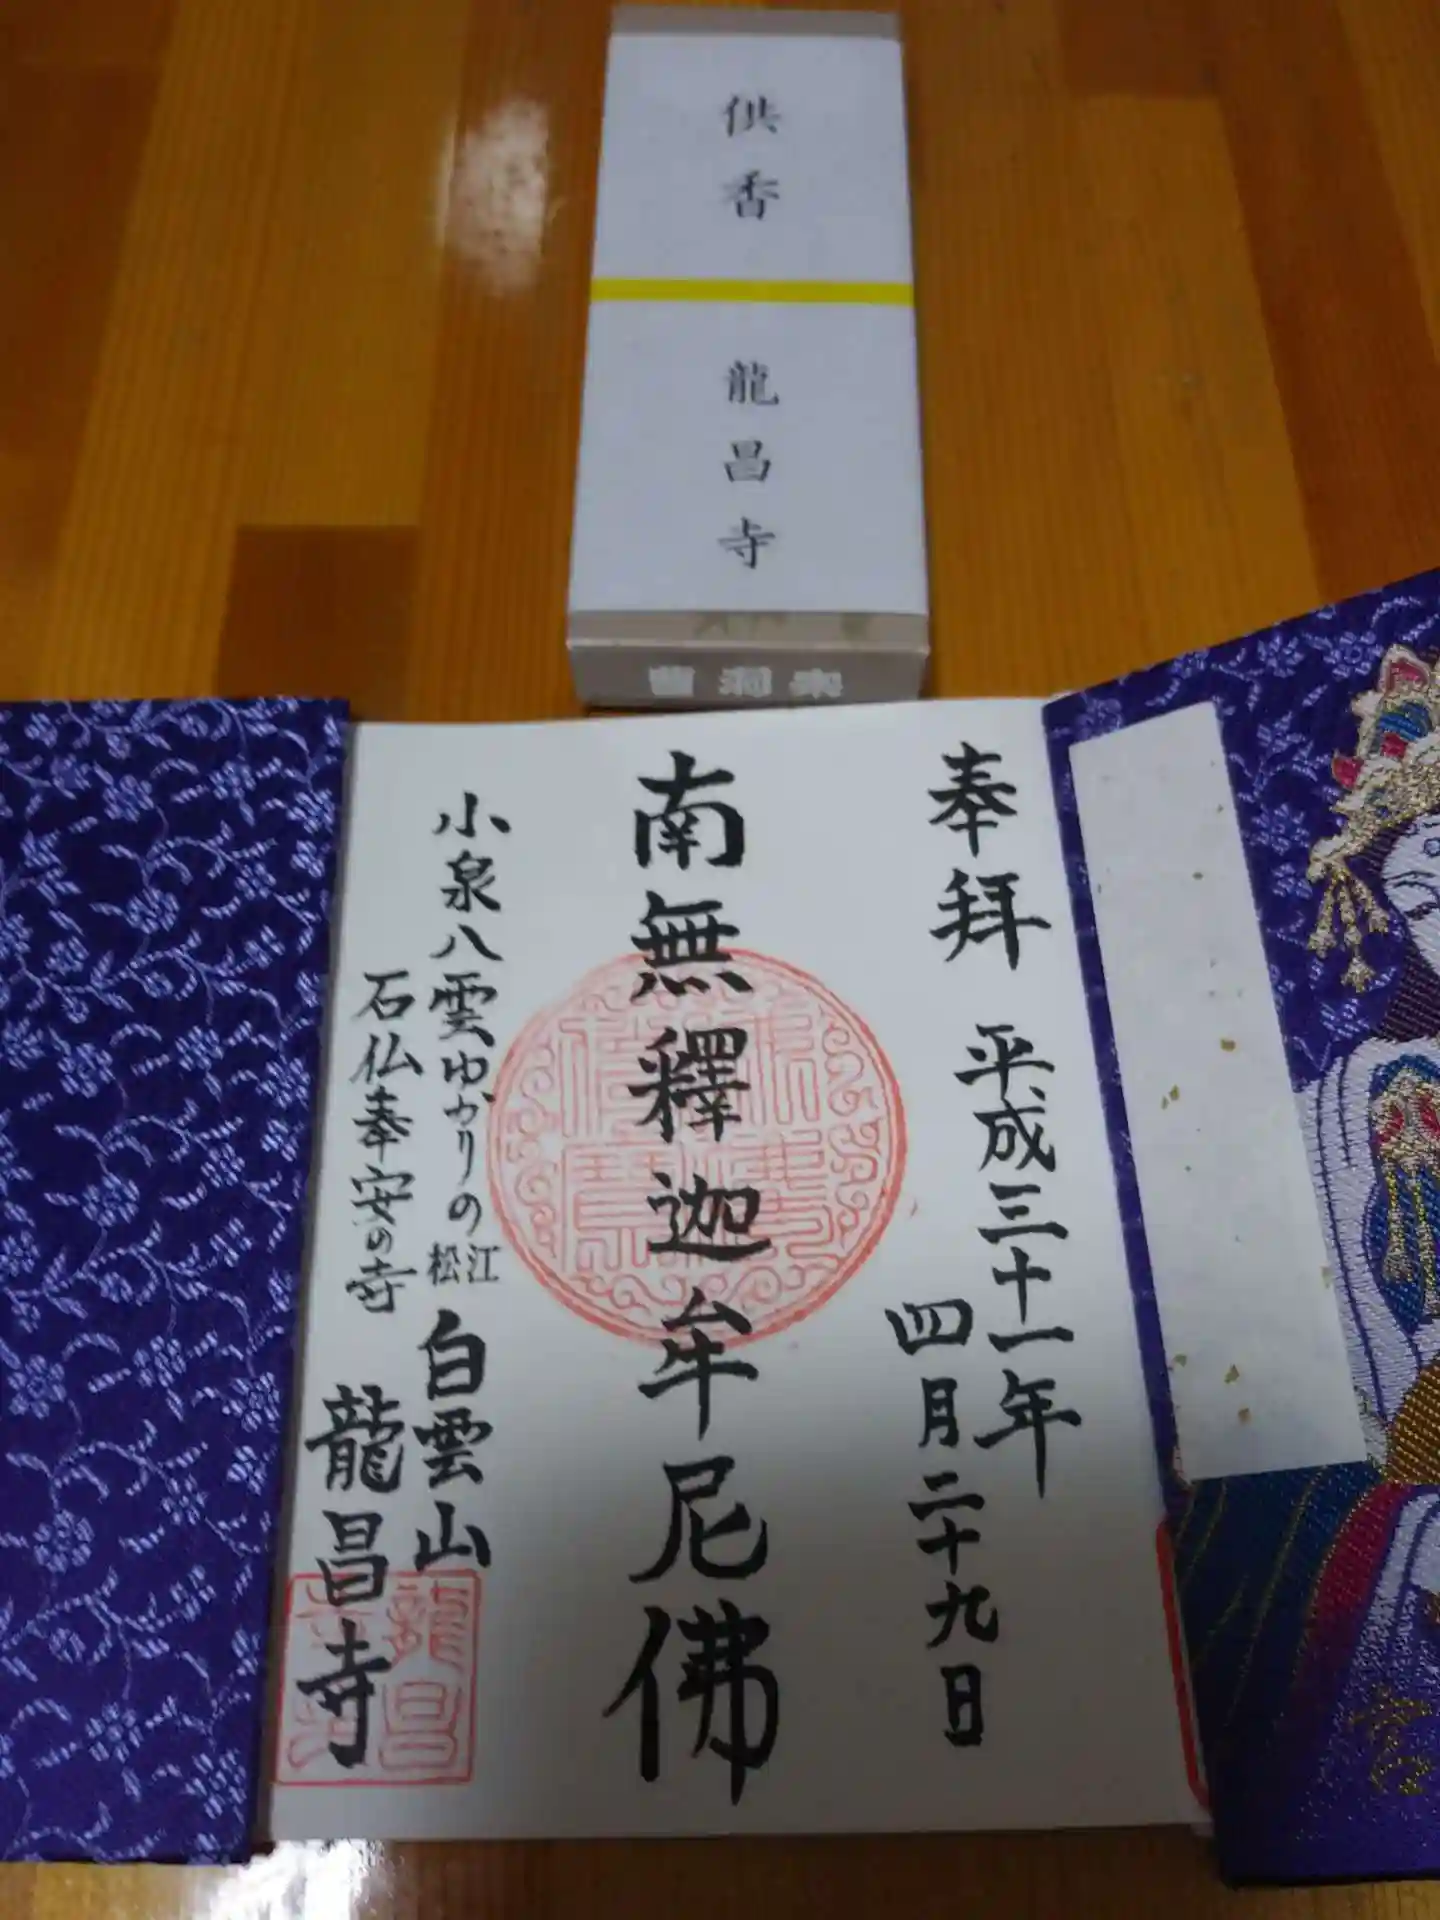 供香
龍昌寺
奉拝
平成三十一年
四月二十九日
南無釋迦牟尼佛
小泉八雲ゆかりの
松江
白雲山
石仏奉安の寺
龍昌寺